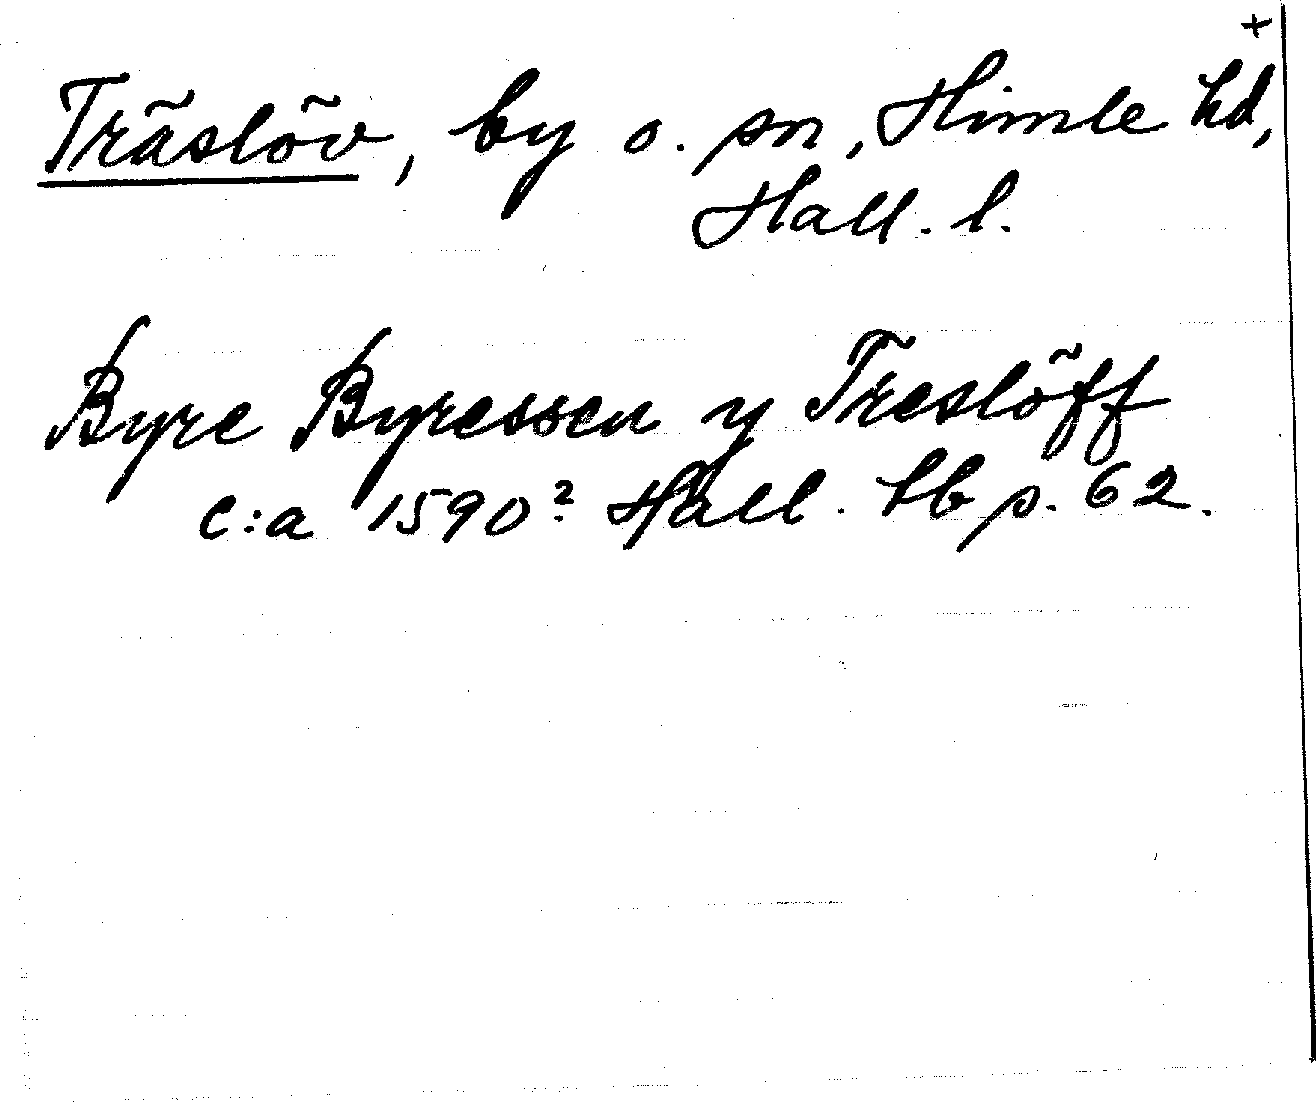 +
Träslöv, by o. sn, Himle hd,
Hall. l.
Byre Byressen y Treslöff
c:a 1590? Hall. lb p. 62.